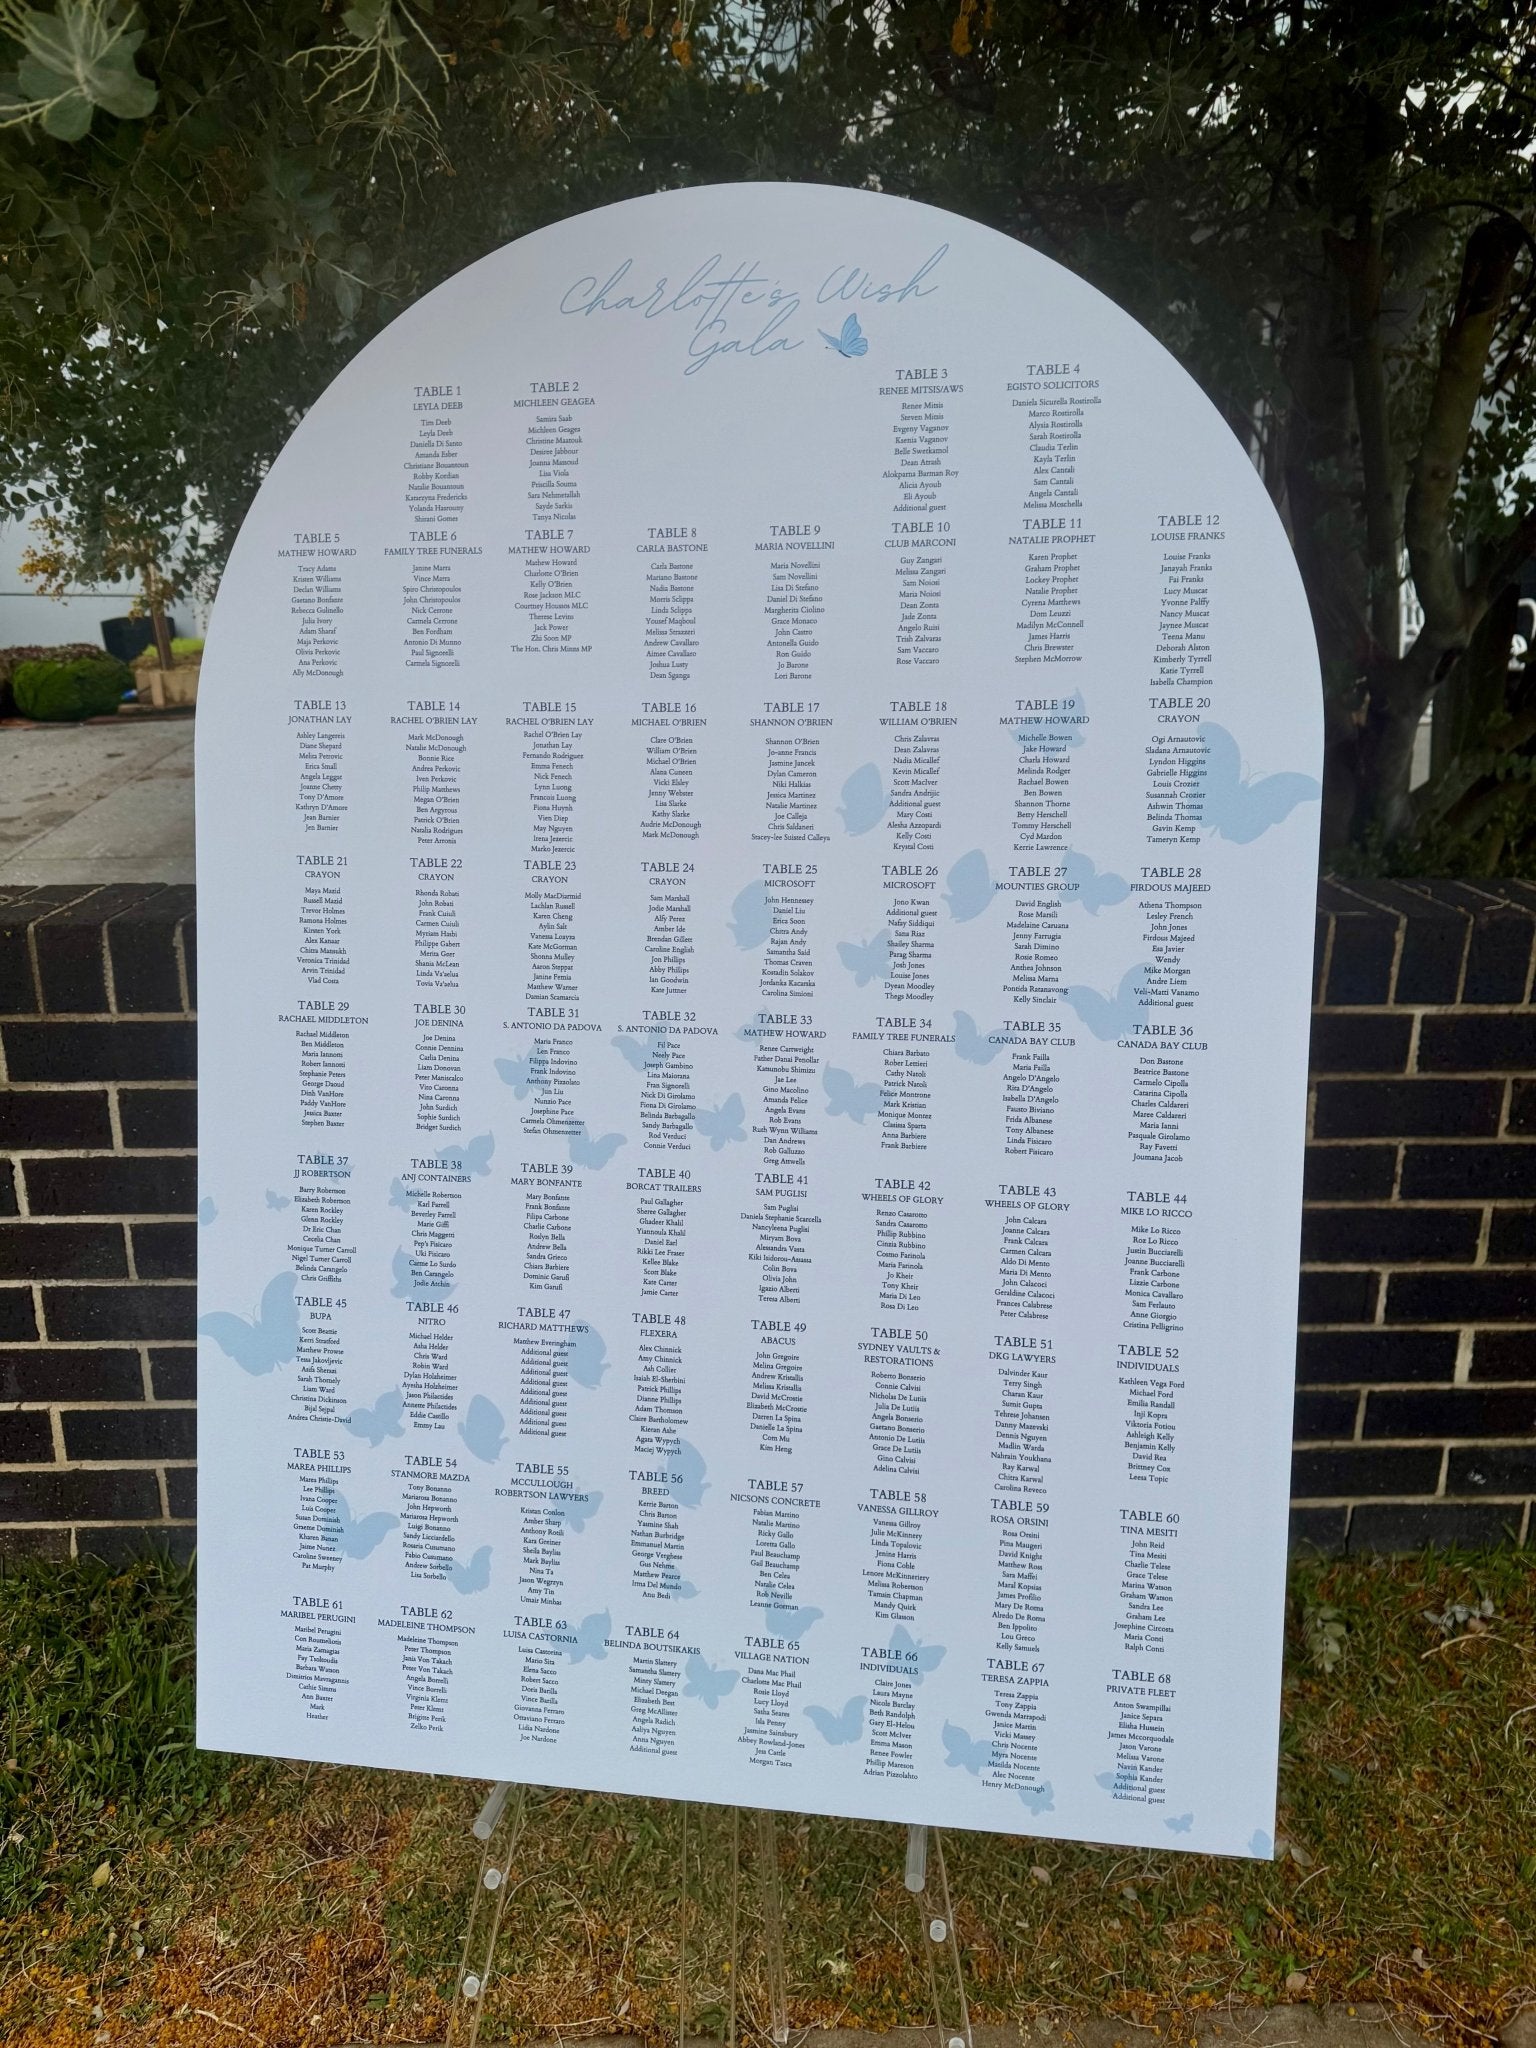 Charlotte's Wish
Gala
TABLE 1
LEYLA DEEB
Tim Deeb
Leyla Deeb
Daniella Di Santo
Amanda Esber
Christiane Bouantoun
Robby Kordian
Natalie Bouantoun
Katarzyna Fredericks
Yolanda Hasrouny
Shirani Gomes
TABLE 2
MICHLEEN GEAGEA
Samira Saab
Michleen Geagea
Christine Maatouk
Desiree Jabbour
Joanna Massoud
Lisa Viola
Priscilla Souma
Sara Nehmetallah
Sayde Sarkis
Tanya Nicolas
TABLE 3
RENEE MITSIS/AWS
Renee Mitsis
Steven Mitsis
Evgeny Vaganov
Ksenia Vaganov
Belle Swetkamol
Dean Atrash
Alokparna Barman Roy
Alicia Ayoub
Eli Ayoub
Additional guest
TABLE 4
EGISTO SOLICITORS
Daniela Sicurella Rostirolla
Marco Rostirolla
Alysia Rostirolla
Sarah Rostirolla
Claudia Terlin
Kayla Terlin
Alex Cantali
Sam Cantali
Angela Cantali
Melissa Moschella
TABLE 5
MATHEW HOWARD
Tracy Adams
Kristen Williams
Declan Williams
Gaetano Bonfante
Rebecca Gulinello
Julia Ivory
Adam Sharaf
Maja Perkovic
Olivia Perkovic
Ana Perkovic
Ally McDonough
TABLE 6
FAMILY TREE FUNERALS
Janine Marra
Vince Marra
Spiro Christopoulos
John Christopoulos
Nick Cerrone
Carmela Cerrone
Ben Fordham
Antonio Di Munno
Paul Signorelli
Carmela Signorelli
TABLE 7
MATHEW HOWARD
Mathew Howard
Charlotte O'Brien
Kelly O'Brien
Rose Jackson MLC
Courtney Houssos MLC
Therese Levins
Jack Power
Zhi Soon MP
The Hon. Chris Minns MP
TABLE 8
CARLA BASTONE
Carla Bastone
Mariano Bastone
Nadia Bastone
Morris Sclippa
Linda Sclippa
Yousef Maqboul
Melissa Strazzeri
Andrew Cavallaro
Aimee Cavallaro
Joshua Lusty
Dean Sganga
TABLE 9
MARIA NOVELLINI
Maria Novellini
Sam Novellini
Lisa Di Stefano
Daniel Di Stefano
Margherita Ciolino
Grace Monaco
John Castro
Antonella Guido
Ron Guido
Jo Barone
Lori Barone
TABLE 10
CLUB MARCONI
Guy Zangari
Melissa Zangari
Sam Noiosi
Maria Noiosi
Dean Zonta
Jade Zonta
Angelo Ruisi
Trish Zalvaras
Sam Vaccaro
Rose Vaccaro
TABLE 11
NATALIE PROPHET
Karen Prophet
Graham Prophet
Lockey Prophet
Natalie Prophet
Cyrena Matthews
Dom Leuzzi
Madilyn McConnell
James Harris
Chris Brewster
Stephen McMorrow
TABLE 12
LOUISE FRANKS
Louise Franks
Janayah Franks
Fai Franks
Lucy Muscat
Yvonne Palffy
Nancy Muscat
Jaynee Muscat
Teena Manu
Deborah Alston
Kimberly Tyrrell
Katie Tyrrell
Isabella Champion
TABLE 13
JONATHAN LAY
Ashley Langereis
Diane Shepard
Melita Petrovic
Erica Small
Angela Leggat
Joanne Chetty
Tony D'Amore
Kathryn D'Amore
Jean Barnier
Jen Barnier
TABLE 14
RACHEL O'BRIEN LAY
Mark McDonough
Natalie McDonough
Bonnie Rice
Andrea Perkovic
Iven Perkovic
Philip Matthews
Megan O'Brien
Ben Argyrous
Patrick O'Brien
Natalia Rodrigues
Peter Arronis
TABLE 15
RACHEL O'BRIEN LAY
Rachel O'Brien Lay
Jonathan Lay
Fernando Rodriguez
Emma Fenech
Nick Fenech
Lynn Luong
Francois Luong
Fiona Huynh
Vien Diep
May Nguyen
Irena Jezercic
Marko Jezercic
TABLE 16
MICHAEL O'BRIEN
Clare O'Brien
William O'Brien
Michael O'Brien
Alana Cuneen
Vicki Elsley
Jenny Webster
Lisa Slarke
Kathy Slarke
Audrie McDonough
Mark McDonough
TABLE 17
SHANNON O'BRIEN
Shannon O'Brien
Jo-anne Francis
Jasmine Jancek
Dylan Cameron
Niki Halkias
Jessica Martinez
Natalie Martinez
Joe Calleja
Chris Saldaneri
Stacey-lee Suisted Calleya
TABLE 18
WILLIAM O'BRIEN
Chris Zalavras
Dean Zalavras
Nadia Micallef
Kevin Micallef
Scott MacIver
Sandra Andrijic
Additional guest
Mary Costi
Alesha Azzopardi
Kelly Costi
Krystal Costi
TABLE 19
MATHEW HOWARD
Michelle Bowen
Jake Howard
Charla Howard
Melinda Rodger
Rachael Bowen
Ben Bowen
Shannon Thorne
Betty Herschell
Tommy Herschell
Cyd Mardon
Kerrie Lawrence
TABLE 20
CRAYON
Ogi Arnautovic
Sladana Arnautovic
Lyndon Higgins
Gabrielle Higgins
Louis Crozier
Susannah Crozier
Ashwin Thomas
Belinda Thomas
Gavin Kemp
Tameryn Kemp
TABLE 21
CRAYON
Maya Mazid
Russell Mazid
Trevor Holmes
Ramona Holmes
Kirsten York
Alex Kanaar
Chitra Mansukh
Veronica Trinidad
Arvin Trinidad
Vlad Costa
TABLE 22
CRAYON
Rhonda Robati
John Robati
Frank Cuiuli
Carmen Cuiuli
Myriam Haibi
Philippe Gabert
Merita Geer
Shania McLean
Linda Va'aelua
Tovia Va'aelua
TABLE 23
CRAYON
Molly MacDiarmid
Lachlan Russell
Karen Cheng
Aylin Salt
Vanessa Loayza
Kate McGorman
Shonna Mulley
Aaron Steppat
Janine Femia
Matthew Warner
Damian Scamarcia
TABLE 24
CRAYON
Sam Marshall
Jodie Marshall
Alfy Perez
Amber Ide
Brendan Gillett
Caroline English
Jon Phillips
Abby Phillips
Ian Goodwin
Kate Juttner
TABLE 25
MICROSOFT
John Hennessey
Daniel Liu
Erica Soon
Chitra Andy
Rajan Andy
Samantha Said
Thomas Craven
Kostadin Solakov
Jordanka Kacarska
Carolina Simioni
TABLE 26
MICROSOFT
Jono Kwan
Additional guest
Nafay Siddiqui
Sana Riaz
Shailey Sharma
Parag Sharma
Josh Jones
Louise Jones
Dyean Moodley
Thegs Moodley
TABLE 27
MOUNTIES GROUP
David English
Rose Marsili
Madelaine Caruana
Jenny Farrugia
Sarah Dimino
Rosie Romeo
Anthea Johnson
Melissa Marna
Pontida Ratanavong
Kelly Sinclair
TABLE 28
FIRDOUS MAJEED
Athena Thompson
Lesley French
John Jones
Firdous Majeed
Esa Javier
Wendy
Mike Morgan
Andre Liem
Veli-Matti Vanamo
Additional guest
TABLE 29
RACHAEL MIDDLETON
Rachael Middleton
Ben Middleton
Maria Iannotti
Robert Iannotti
Stephanie Peters
George Daoud
Dinh VanHore
Paddy VanHore
Jessica Baxter
Stephen Baxter
TABLE 30
JOE DENINA
Joe Denina
Connie Dennina
Carlia Denina
Liam Donovan
Peter Maniscalco
Vito Caronna
Nina Caronna
John Surdich
Sophie Surdich
Bridget Surdich
TABLE 31
S. ANTONIO DA PADOVA
Maria Franco
Len Franco
Filippa Indovino
Frank Indovino
Anthony Pizzolato
Jun Liu
Nunzio Pace
Josephine Pace
Carmela Ohmenzetter
Stefan Ohmenzetter
TABLE 32
S. ANTONIO DA PADOVA
Fil Pace
Neely Pace
Joseph Gambino
Lina Maiorana
Fran Signorelli
Nick Di Girolamo
Fiona Di Girolamo
Belinda Barbagallo
Sandy Barbagallo
Rod Verduci
Connie Verduci
TABLE 33
MATHEW HOWARD
Renee Cartwright
Father Danai Penollar
Katsunobu Shimizu
Jae Lee
Gino Macolino
Amanda Felice
Angela Evans
Rob Evans
Ruth Wynn Williams
Dan Andrews
Rob Galluzzo
Greg Attwells
TABLE 34
FAMILY TREE FUNERALS
Chiara Barbato
Rober Lettieri
Cathy Natoli
Patrick Natoli
Felice Montrone
Mark Kristian
Monique Montez
Clasissa Sparta
Anna Barbiere
Frank Barbiere
TABLE 35
CANADA BAY CLUB
Frank Failla
Maria Failla
Angelo D'Angelo
Rita D'Angelo
Isabella D'Angelo
Fausto Biviano
Frida Albanese
Tony Albanese
Linda Fisicaro
Robert Fisicaro
TABLE 36
CANADA BAY CLUB
Don Bastone
Beatrice Bastone
Carmelo Cipolla
Catarina Cipolla
Charles Caldareri
Maree Caldareri
Maria Ianni
Pasquale Girolamo
Ray Favetti
Joumana Jacob
TABLE 37
JJ ROBERTSON
Barry Robertson
Elizabeth Robertson
Karen Rockley
Glenn Rockley
Dr Eric Chan
Cecelia Chan
Monique Turner Carroll
Nigel Turner Carroll
Belinda Carangelo
Chris Griffiths
TABLE 38
ANJ CONTAINERS
Michelle Robertson
Karl Farrell
Beverley Farrell
Marie Giffi
Chris Maggetti
Pep's Fisicaro
Uki Fisicaro
Carme Lo Surdo
Ben Carangelo
Jodie Atchin
TABLE 39
MARY BONFANTE
Mary Bonfante
Frank Bonfante
Filipa Carbone
Charlie Carbone
Roslyn Bella
Andrew Bella
Sandra Grieco
Chiara Barbiere
Dominic Garufi
Kim Garufi
TABLE 40
BORCAT TRAILERS
Paul Gallagher
Sheree Gallagher
Ghadeer Khalil
Yiannoula Khalil
Daniel Earl
Rikki Lee Fraser
Kellee Blake
Scott Blake
Kate Carter
Jamie Carter
TABLE 41
SAM PUGLISI
Sam Puglisi
Daniela Stephanie Scarcella
Nancyleena Puglisi
Miryam Bova
Alessandra Vasta
Kiki Isidorou-Assassa
Colin Bova
Olivia John
Igazio Alberti
Teresa Alberti
TABLE 42
WHEELS OF GLORY
Renzo Casarotto
Sandra Casarotto
Phillip Rubbino
Cinzia Rubbino
Cosmo Farinola
Maria Farinola
Jo Kheir
Tony Kheir
Maria Di Leo
Rosa Di Leo
TABLE 43
WHEELS OF GLORY
John Calcara
Joanne Calcara
Frank Calcara
Carmen Calcara
Aldo Di Mento
Maria Di Mento
John Calacoci
Geraldine Calacoci
Frances Calabrese
Peter Calabrese
TABLE 44
MIKE LO RICCO
Mike Lo Ricco
Roz Lo Ricco
Justin Bucciarelli
Joanne Bucciarelli
Frank Carbone
Lizzie Carbone
Monica Cavallaro
Sam Ferlauto
Anne Giorgio
Cristina Pelligrino
TABLE 45
BUPA
Scott Beattie
Kerri Stratford
Matthew Prowse
Tessa Jakovljevic
Asifa Sherazi
Sarah Thomely
Liam Ward
Christina Dickinson
Bijal Sejpal
Andrea Christie-David
TABLE 46
NITRO
Michael Helder
Asha Helder
Chris Ward
Robin Ward
Dylan Holzheimer
Ayesha Holzheimer
Jason Philactides
Annette Philactides
Eddie Castillo
Emmy Lau
TABLE 47
RICHARD MATTHEWS
Matthew Everingham
Additional guest
Additional guest
Additional guest
Additional guest
Additional guest
Additional guest
Additional guest
Additional guest
Additional guest
TABLE 48
FLEXERA
Alex Chinnick
Amy Chinnick
Ash Collier
Isaiah El-Sherbini
Patrick Phillips
Dianne Phillips
Adam Thomson
Claire Bartholomew
Kieran Ashe
Agata Wypych
Maciej Wypych
TABLE 49
ABACUS
John Gregoire
Melina Gregoire
Andrew Kristallis
Melissa Kristallis
David McCrostie
Elizabeth McCrostie
Darren La Spina
Danielle La Spina
Com Mu
Kim Heng
TABLE 50
SYDNEY VAULTS &
RESTORATIONS
Roberto Bonserio
Connie Calvisi
Nicholas De Lutiis
Julia De Lutiis
Angela Bonserio
Gaetano Bonserio
Antonio De Lutiis
Grace De Lutiis
Gino Calvisi
Adelina Calvisi
TABLE 51
DKG LAWYERS
Dalvinder Kaur
Terry Singh
Charan Kaur
Sumit Gupta
Tehrese Johansen
Danny Mazevski
Dennis Nguyen
Madlin Warda
Nahrain Youkhana
Ray Karwal
Chitra Karwal
Carolina Reveco
TABLE 52
INDIVIDUALS
Kathleen Vega Ford
Michael Ford
Emilia Randall
Inji Kopra
Viktoria Fotiou
Ashleigh Kelly
Benjamin Kelly
David Rea
Brittney Cox
Leesa Topic
TABLE 53
MAREA PHILLIPS
Marea Phillips
Lee Phillips
Ivana Cooper
Luis Cooper
Susan Dominish
Graeme Dominish
Kharen Banan
Jaime Nunez
Caroline Sweeney
Pat Murphy
TABLE 54
STANMORE MAZDA
Tony Bonanno
Mariarosa Bonanno
John Hepworth
Mariarosa Hepworth
Luigi Bonanno
Sandy Licciardello
Rosaria Cusumano
Fabio Cusumano
Andrew Sorbello
Lisa Sorbello
TABLE 55
MCCULLOUGH
ROBERTSON LAWYERS
Kristan Conlon
Amber Sharp
Anthony Rotili
Kara Greiner
Sheila Bayliss
Mark Bayliss
Nina Ta
Jason Wegrzyn
Amy Tin
Umair Minhas
TABLE 56
BREED
Kerrie Barton
Chris Barton
Yasmine Shah
Nathan Burbridge
Emmanuel Martin
George Verghese
Gus Nehme
Matthew Pearce
Irma Del Mundo
Anu Bedi
TABLE 57
NICSONS CONCRETE
Fabian Martino
Natalie Martino
Ricky Gallo
Loretta Gallo
Paul Beauchamp
Gail Beauchamp
Ben Celea
Natalie Celea
Rob Neville
Leanne Gorman
TABLE 58
VANESSA GILLROY
Vanessa Gillroy
Julie McKinnery
Linda Topalovic
Jenine Harris
Fiona Coble
Lenore McKinneriery
Melissa Robertson
Tamsin Chapman
Mandy Quirk
Kim Glasson
TABLE 59
ROSA ORSINI
Rosa Orsini
Pina Maugeri
David Knight
Matthew Ross
Sara Maffei
Maral Kopsias
James Profilio
Mary De Roma
Alredo De Roma
Ben Ippolito
Lou Greco
Kelly Samuels
TABLE 60
TINA MESITI
John Reid
Tina Mesiti
Charlie Telese
Grace Telese
Marina Watson
Graham Watson
Sandra Lee
Graham Lee
Josephine Circosta
Maria Conti
Ralph Conti
TABLE 61
MARIBEL PERUGINI
Maribel Perugini
Con Roumeliotis
Maria Zamagias
Fay Tsoltoudis
Barbara Watson
Dimitrios Mavragannis
Cathie Simms
Ann Baxter
Mark
Heather
TABLE 62
MADELEINE THOMPSON
Madeleine Thompson
Peter Thompson
Janis Von Takach
Peter Von Takach
Angela Borrelli
Vince Borrelli
Virginia Klemt
Peter Klemt
Brigitte Perik
Zelko Perik
TABLE 63
LUISA CASTORNIA
Luisa Castorina
Mario Sita
Elena Sacco
Robert Sacco
Doris Barilla
Vince Barilla
Giovanna Ferraro
Ottaviano Ferraro
Lidia Nardone
Joe Nardone
TABLE 64
BELINDA BOUTSIKAKIS
Martin Slattery
Samantha Slattery
Minty Slattery
Michael Deegan
Elizabeth Best
Greg McAllister
Angela Radich
Aaliya Nguyen
Anna Nguyen
Additional guest
TABLE 65
VILLAGE NATION
Dana Mac Phail
Charlotte Mac Phail
Rosie Lloyd
Lucy Lloyd
Sasha Seares
Isla Penny
Jasmine Sainsbury
Abbey Rowland-Jones
Jess Cattle
Morgan Tasca
TABLE 66
INDIVIDUALS
Claire Jones
Laura Mayne
Nicole Barclay
Beth Randolph
Gary El-Helou
Scott McIver
Emma Mason
Renee Fowler
Phillip Mareson
Adrian Pizzolahto
TABLE 67
TERESA ZAPPIA
Teresa Zappia
Tony Zappia
Gwenda Marrapodi
Janice Martin
Vicki Massey
Chris Nocente
Myra Nocente
Matilda Nocente
Alec Nocente
Henry McDonough
TABLE 68
PRIVATE FLEET
Anton Swampillai
Janice Separa
Elisha Hussein
James Mccorquodale
Jason Varone
Melissa Varone
Navin Kander
Sophia Kander
Additional guest
Additional guest